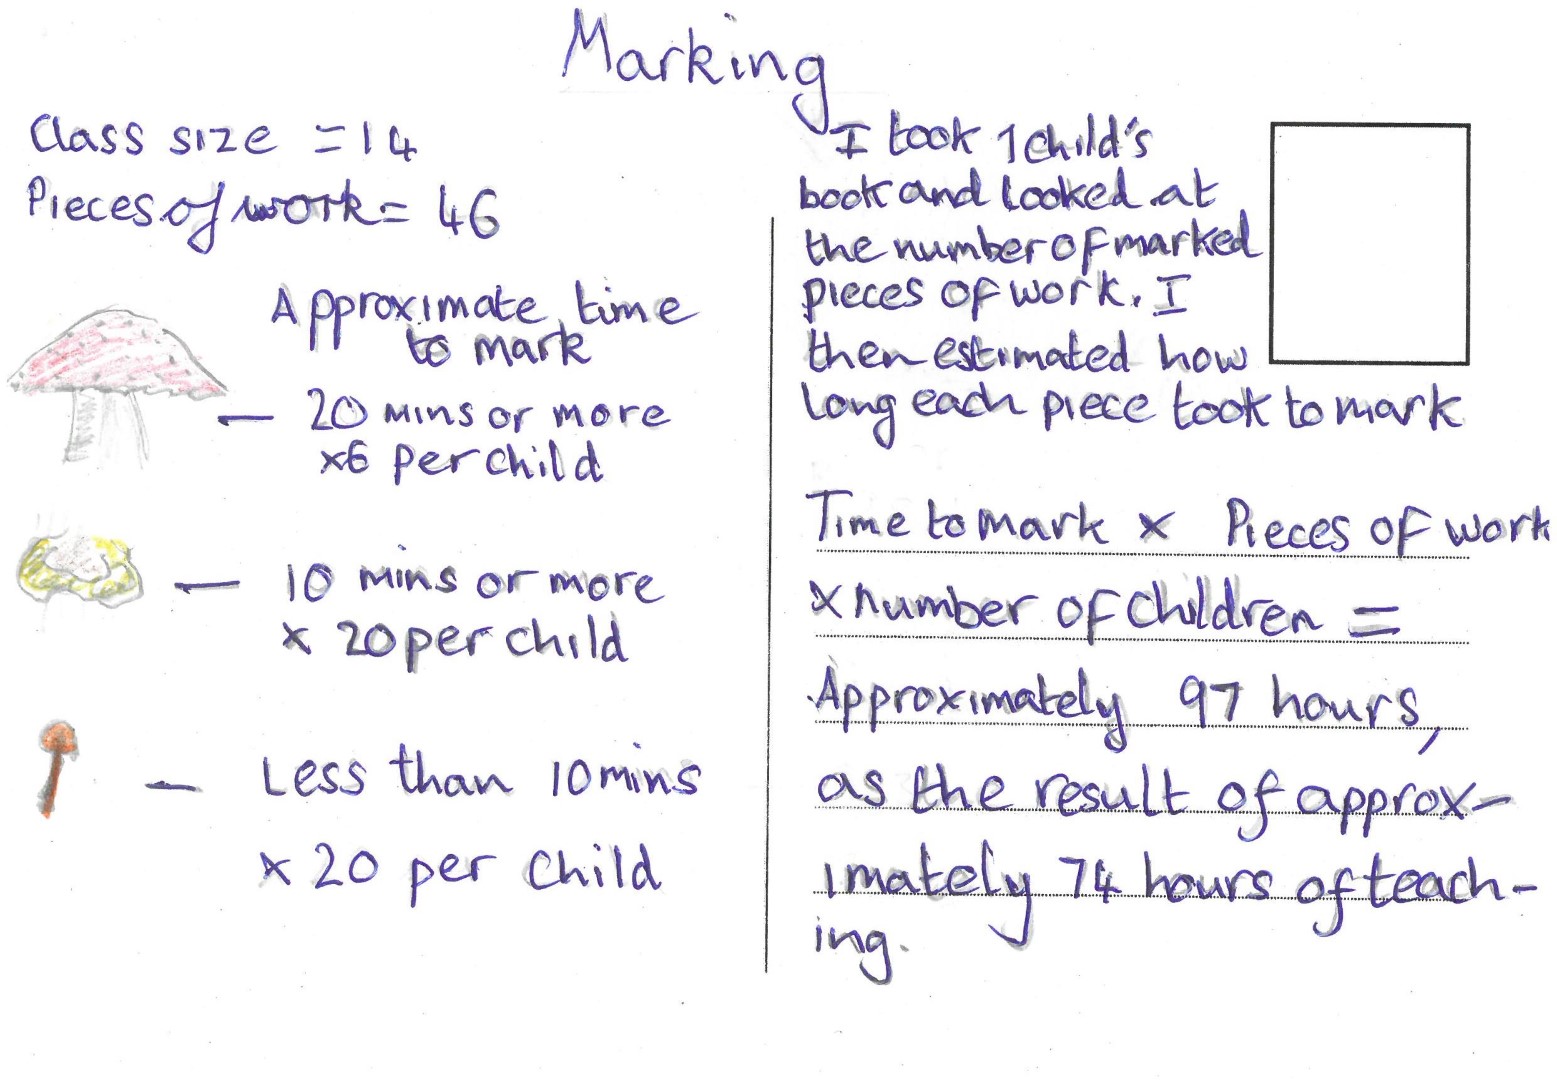 Marking
Class size = 14
Pieces of work = 46
Approximate time
to mark
— 20 mins or more
x6 per child
— 10 mins or more
x 20 per child
— Less than 10 mins
x 20 per child
I took 1 child's
book and looked at
the number of marked
pieces of work. I
then estimated how
long each piece took to mark
Time to mark x Pieces of work
x number of children =
Approximately 97 hours,
as the result of approx-
imately 74 hours of teach-
ing.